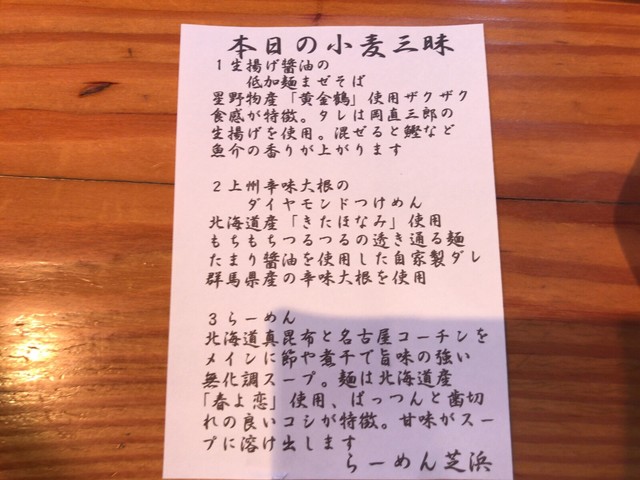 本日の小麦三昧
1生揚げ醬油の
低加麺まぜそば
星野物産「黄金鶴」使用ザクザク
食感が特徴。タレは岡直三郎の
生揚げを使用。混ぜると鰹など
魚介の香りが上がります
2上州辛味大根の
ダイヤモンドつけめん
北海道産「きたほなみ」使用
もちもちつるつるの透き通る麺
たまり醬油を使用した自家製ダレ
群馬県産の辛味大根を使用
3らーめん
北海道真昆布と名古屋コーチンを
メインに節や煮干で旨味の強い
無化調スープ。麺は北海道産
「春よ恋」使用、ぱっつんと歯切
れの良いコシが特徴。甘味がスー
プに溶け出します
らーめん芝浜